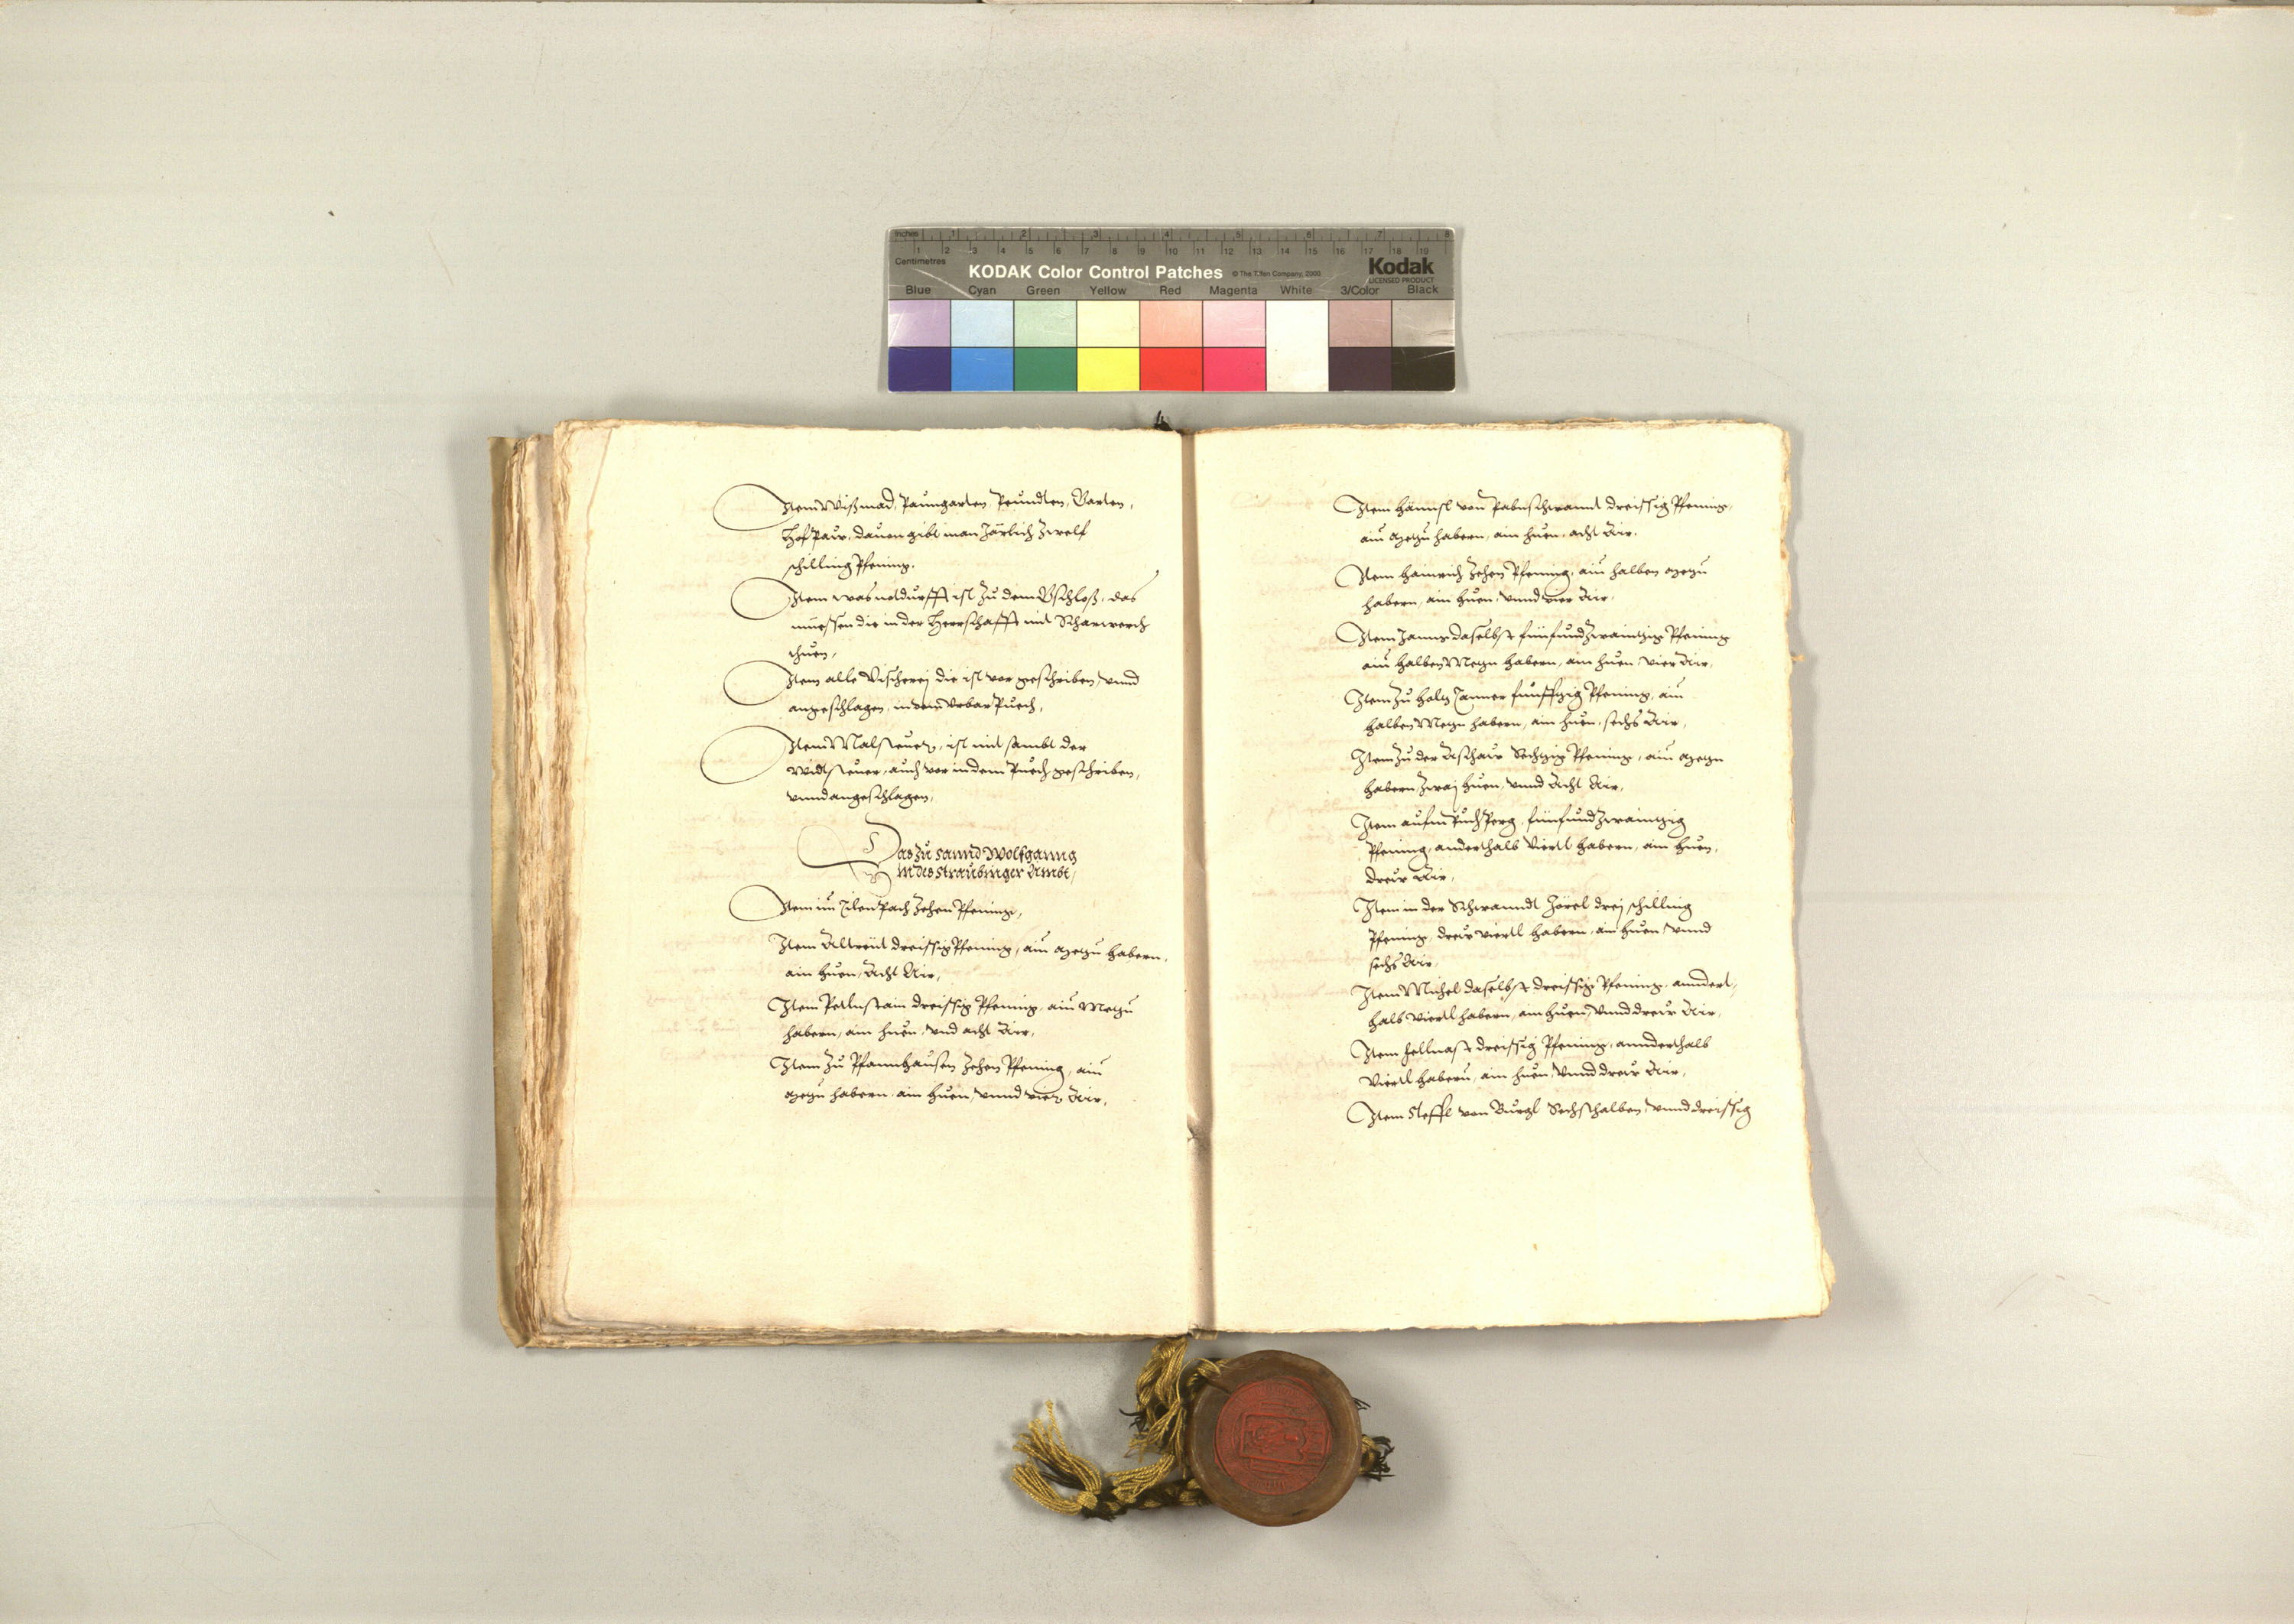 Inches 1 2 3 4 5 6 7 8
1 2 3 4 5 6 7 8 9 10 11 12 13 14 15 16 17 18 19
Centimetres
KODAK Color Control Patches © The Tiffen Company, 2000 Kodak
LICENSED PRODUCT
Blue Cyan Green Yellow Red Magenta White 3/Color Black
Item Wißmad, Paumgarten, Peundten, Garten,
Hof Paur, dauon gibt man Järlich Zwelf
schilling Pfening.
Item was notdurfft ist Zu dem Gschloß, das
muessen die in der Herrschafft mit Scharwerch
thuen,
Item alle Vischerej die ist vor geschriben, vnnd
angeschlagen, in dem Vrbar Puech,
Item Malsteuer, ist mit sambt der
Widtsteuer, auch vor in dem Puech geschriben,
vnnd angeschlagen,
Das zu sannd Wolfganng
in des Straubinger Ambt,
Item im Pach Zehen Pfening,
Item Altreüt dreissig Pfening, ain Metzn habern,
ain huen, Acht Air,
Item dreissig Pfening, ain Metzn
habern, ain huen, vnd acht Air,
Item Zu Pfannhausen Zehen Pfening, ain
Metzn habern, ain huen, vnnd vier Air,
Item Hännsl von dreissig Pfening,
ain Metzn habern, ain huen, acht Air.
Item Hainrich Zehen Pfening, ain halben Metzn
habern, ain huen, vnnd vier Air,
Item daselbst fünfundzwaintzig Pfening
ain halben Metzn habern, ain huen, vier Air,
Item Zu funfftzig Pfening, ain
halben Metzn habern, ain huen, sechs Air,
Item Zu der Aschaw Sechtzig Pfening, ain Metzn
habern, Zwaj huen, vnnd Acht Air,
Item aufm Puchperg, fünfundzwaintzig
Pfening, anderthalb Viertl habern, ain huen,
dreir Air,
Item in der Schwanndt drej schilling
Pfening, dreir viertl habern, ain huen, vnnd
sechs Air,
Item Michel daselbst dreissig Pfening, anndert,
halb viertl habern, ain huen, vnnd dreir Air,
Item dreissig Pfening, annderthalb
Viertl habern, ain huen, vnnd dreir Air,
Item Steffl von Burgl Sechsthalben, vnnd dreissig